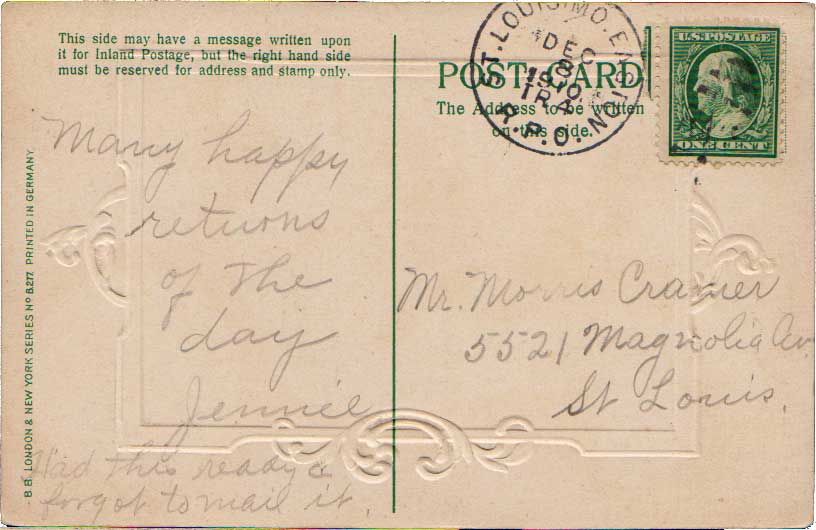 This side may have a message written upon
it for Inland Postage, but the right hand side
must be reserved for address and stamp only.
POST CARD
The Address to be written
on this side.
ST. LOUIS, MO.
DEC
8
1910
TR 4
R.P.O.
U.S. POSTAGE
ONE CENT
Many happy
returns
of the
day
Jennie
Had this ready &
forgot to mail it.
Mr. Morris Cramer
5521 Magnolia Av.
St Louis.
B.B. LONDON & NEW YORK SERIES No B277 PRINTED IN GERMANY